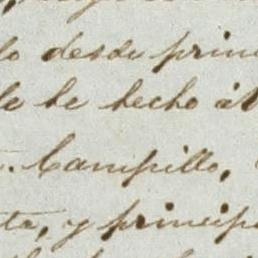 lo desde prin
le he hecho á
Campillo,
ta, y princip